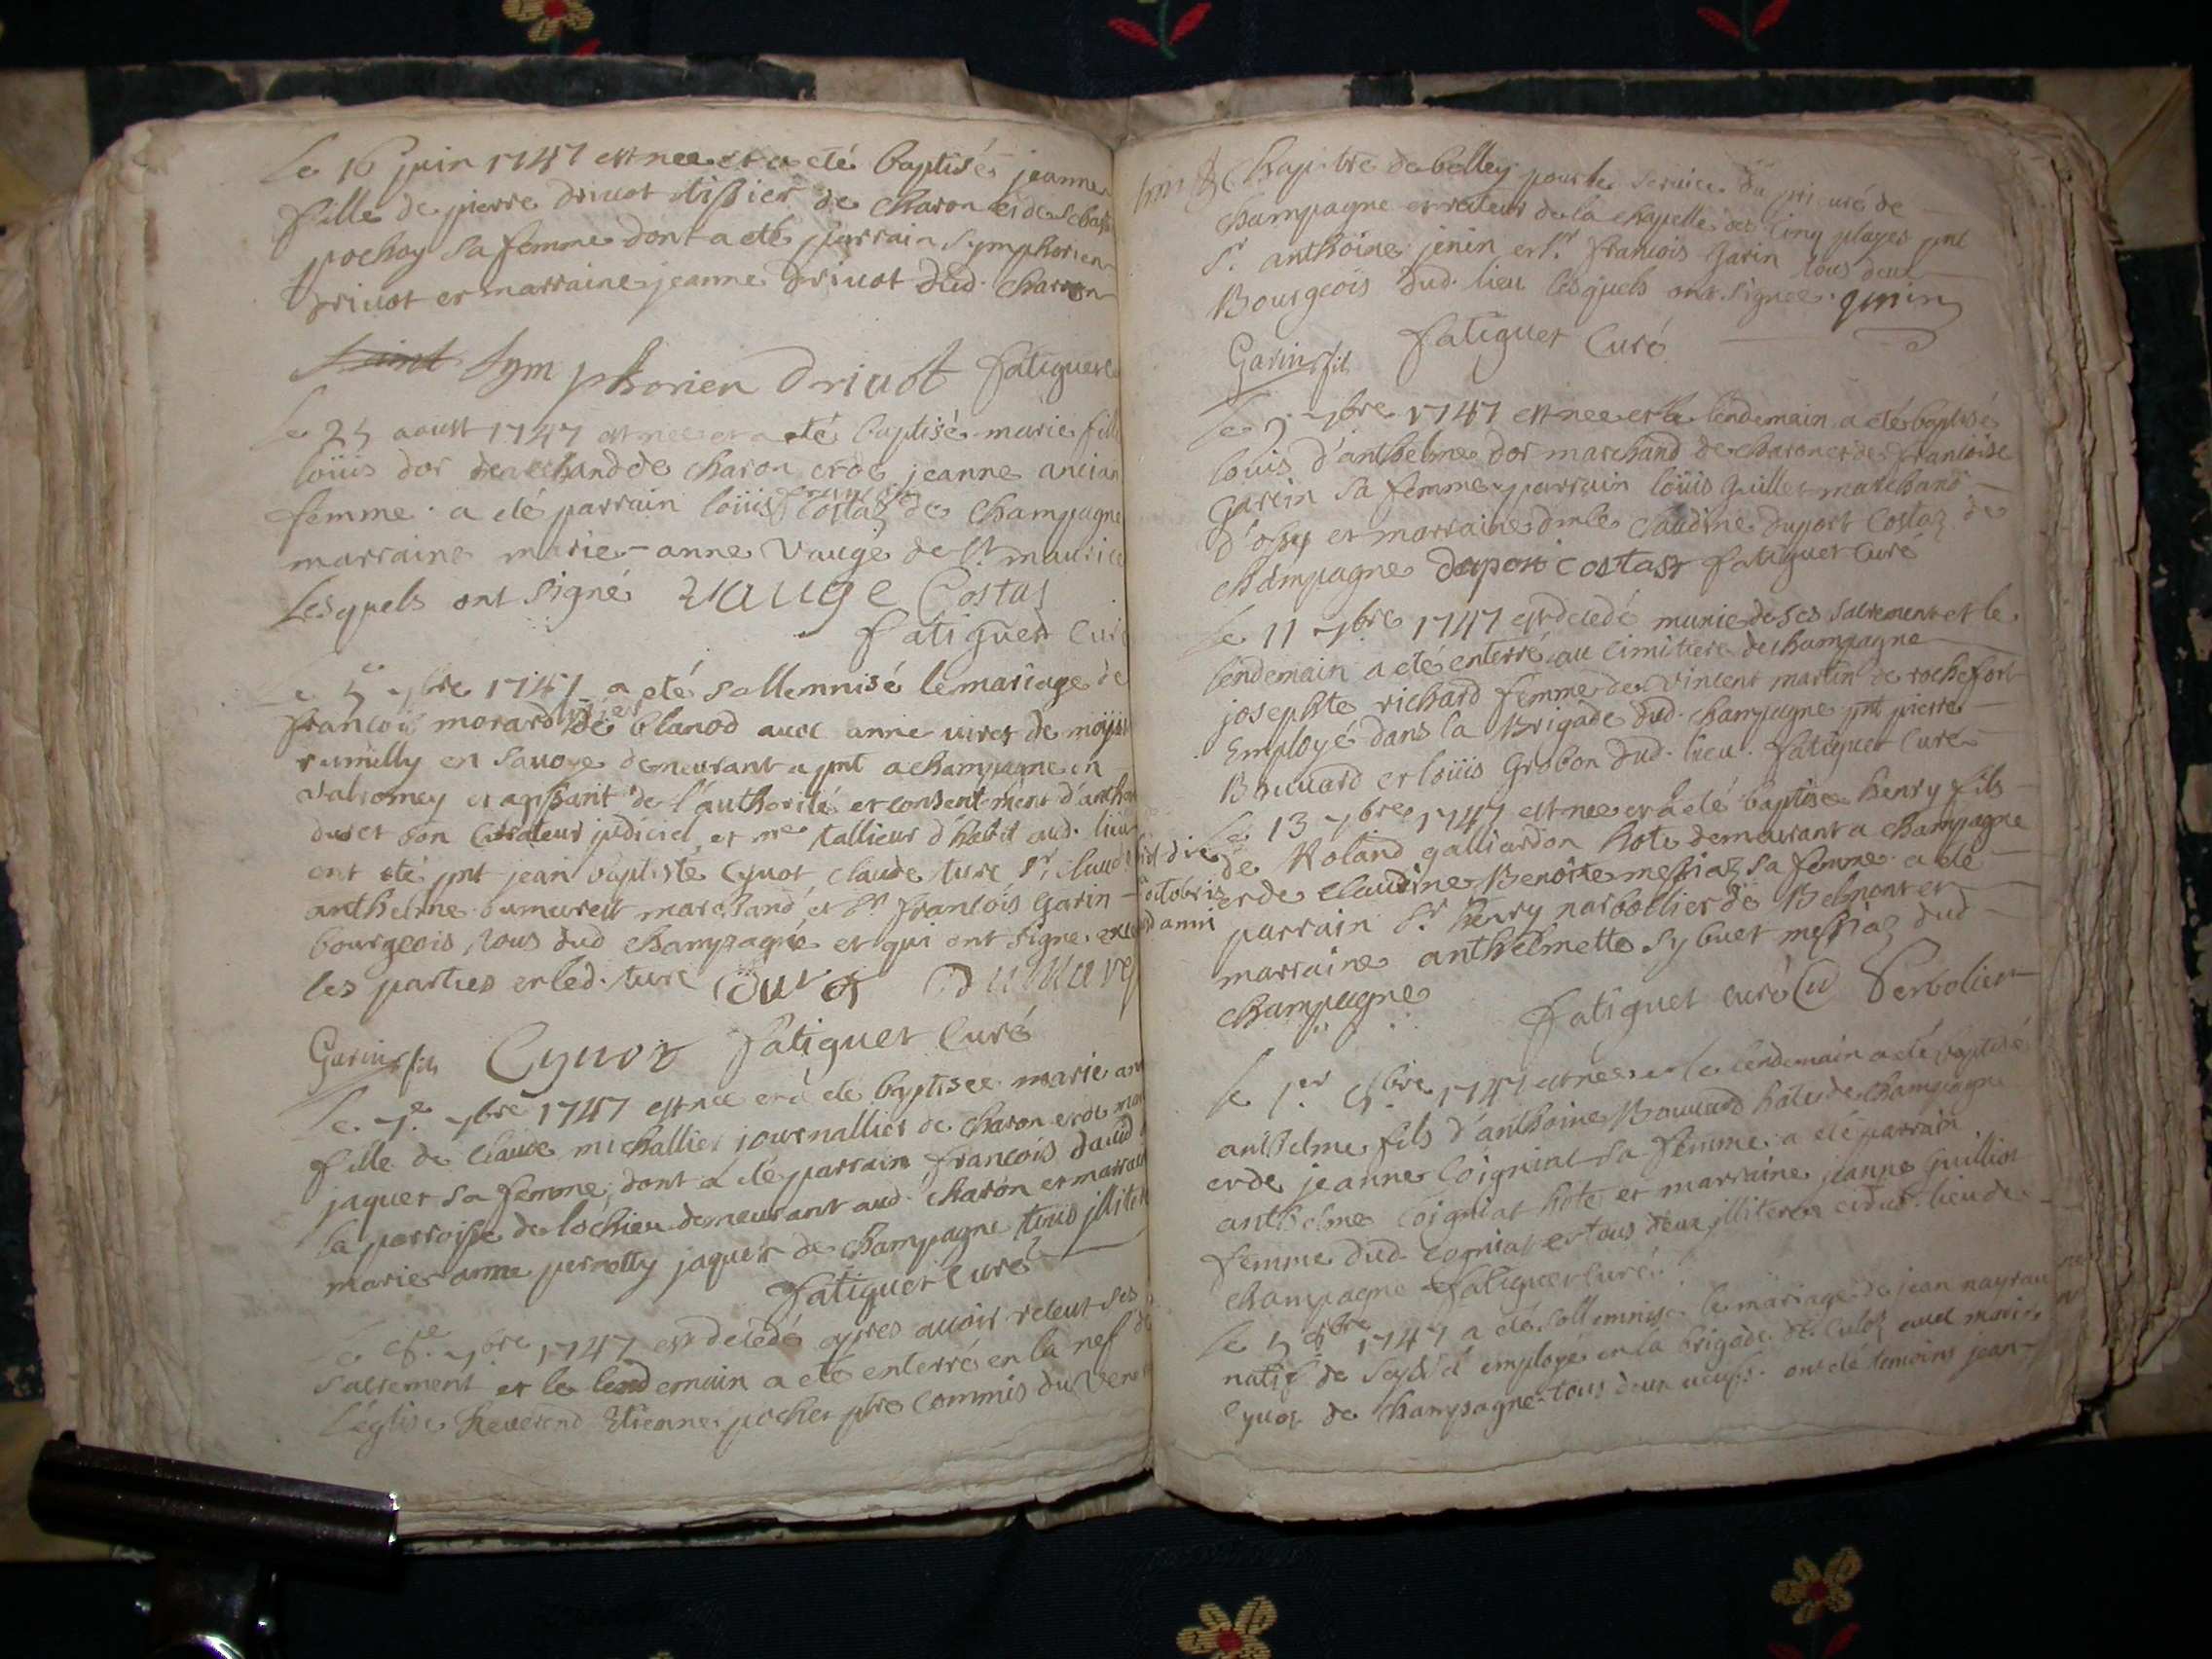 Le 16 juin 1747 est nee et a eté baptisée jeanne
fille de pierre Drivot tissier de charon et de sebast
pochoy sa femme dont a eté parrain symphorien
Drivot et marraine jeanne Drivot dud. charron
Symphorien Drivot fatiguet
Le 25 aoust 1747 est nee et a eté baptisé marie fille
loüis dor marchand de charon et de jeanne ancian
femme. a eté parrain loüis Costaz de champagne
marraine marie-anne Vaugé de st. maurice
Lesquels ont signé Vauge Costaz
fatiguet Curé
Le 5e 7bre 1747 a eté sollemnisé le mariage de
francois morard de blanod avec anne viret de moÿe
rumilly en Savoye demeurant a pnt a champagne en
valromey et agissant de l'authorité et consentement d'anth
duret son Curateur judiciel, et me tallieur d'habit aud. lieu
ont eté pnt jean baptiste Cyvot claude ture sr. claude
anthelme dumarest marchand, et sr francois Garin
bourgeois, tous dud champagne et qui ont signe exce
les parties et led. ture Duret Dumare
Garin fils Cyvot fatiguet Curé
Le 7.e 7bre 1747 est nee et a eté baptisee marie an
fille de claude michallier journallier de charon et de mar
jaquet sa femme, dont a eté parrain francois David
la parroisse de lochieu demeurant aud. charon et marrai
marie anne perrotty jaquet de champagne tous illiter
fatiguet Curé
Le 8.e 7bre 1747 est decedé apres avoir receut ses
sacrement et le lendemain a eté enterré en la nef de
l'église Reverend Etienne pochet ptre commis du Vene
Chapitre de belley pour le service du prieuré de
champagne et recteur de la chapelle des Cinq playes pnt
Sr. anthoine jenin et sr. francois Garin tous deux
Bourgeois dud. lieu lesquels ont signee. jenin
Garin fils fatiguet Curé
Le 9 7bre 1747 est nee et le lendemain a eté baptisé
louis d'anthelme dor marchand de charon et de francoise
Garin sa femme parrain loüis Guillet marchand
d'ossy et marraine dmle claudine duport Costaz de
champagne duport costaz fatiguet Curé
Le 11 7bre 1747 est decedé munie de ses sacrement et le
lendemain a eté enterré au cimitiere de champagne
josephte richard femme de vincent martin de rochefort
Employé dans la Brigade dud. champagne pnt pierre
Bouvard et loüis Grobon dud. lieu. fatiguet Curé
Le 13 7bre 1747 est nee et a eté baptisé henry fils
de Roland galliardon hote demeurant a champagne
octobris et de claudine Benoite messiaz sa femme a eté
parrain Sr. henry narbollier de Belmont et
marraine anthelmette sybuet messiaz dud
champagne fatiguet curé
Le 1.er 8bre 1747 est nee et le lendemain a eté baptisé
anthelme fils d'anthoine Bouvard hote de champagne
et de jeanne Coigniat sa femme. a eté parrain
anthelme Coigniat hote et marraine jeanne Guilliot
femme dud. cogniat et tous deux illiteres et dud. lieu de
champagne fatiguet curé.
Le 5 8bre 1747 a eté sollemnisé le mariage de jean nayrau
natif de employé en la brigade de Culoz avec marie
Cyvot de champagne tous deux veufs. ont eté temoins jean